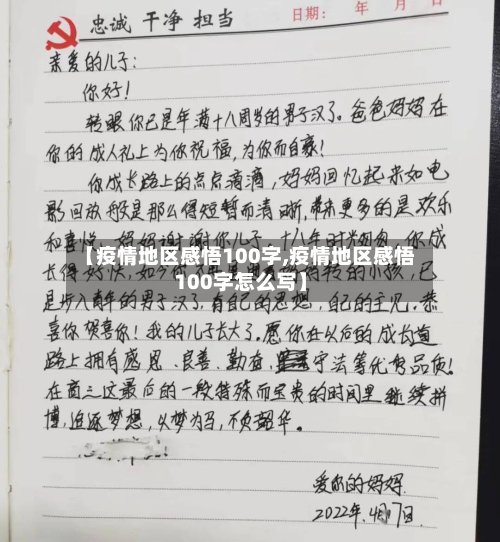 忠诚 干净 担当
日期： 年 月
亲爱的儿子：
你好！
转眼你已是年满十八周岁的男子汉了。爸爸妈妈在
你的成人礼上为你祝福，为你而自豪！
你成长路上的点点滴滴，妈妈回忆起来如电
影回放般是那么得短暂而清晰，带来更多的是欢乐
和喜悦。妈妈谢谢你儿子，十八年时光匆匆，你成
【疫情地区感悟100字,疫情地区感悟
长得好快，如今你不再是
的小孩，已
100字怎么写】
是步入青年的男子汉了，有自己的思想，自己的主见。恭
喜你贺喜你！我的儿子长大了。愿你在以后的成长道
路上拥有感恩、良善、勤奋、守法等优秀品质！
在高三这最后的一段特殊而宝贵的时间里继续拼
搏，追逐梦想，以梦为马，不负韶华。
爱你的妈妈
2022年.4月7日.